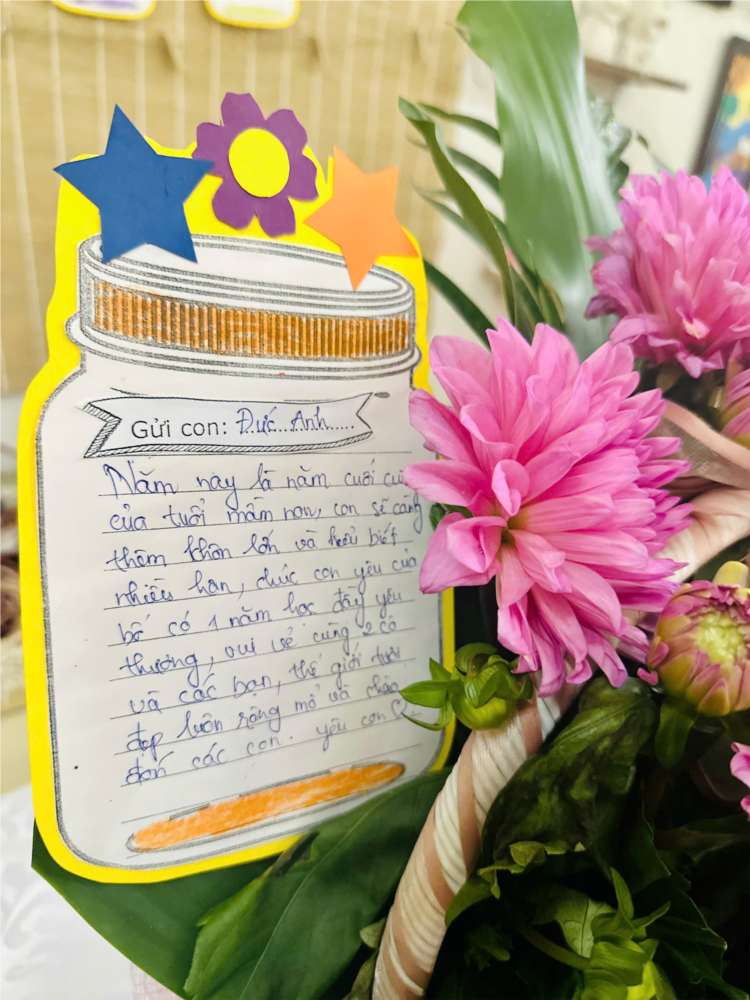 Gửi con: Đức..Anh.....
Năm nay là năm cuối cù
của tuổi mầm non, con sẽ càng
thêm khôn lớn và hiểu biết
nhiều hơn, chúc con yêu của
bố có 1 năm học đầy yêu
thương, vui vẻ cùng 2 cô
và các bạn, thế giới tươi
đẹp luôn rộng mở và chào
đón các con. yêu con ♡